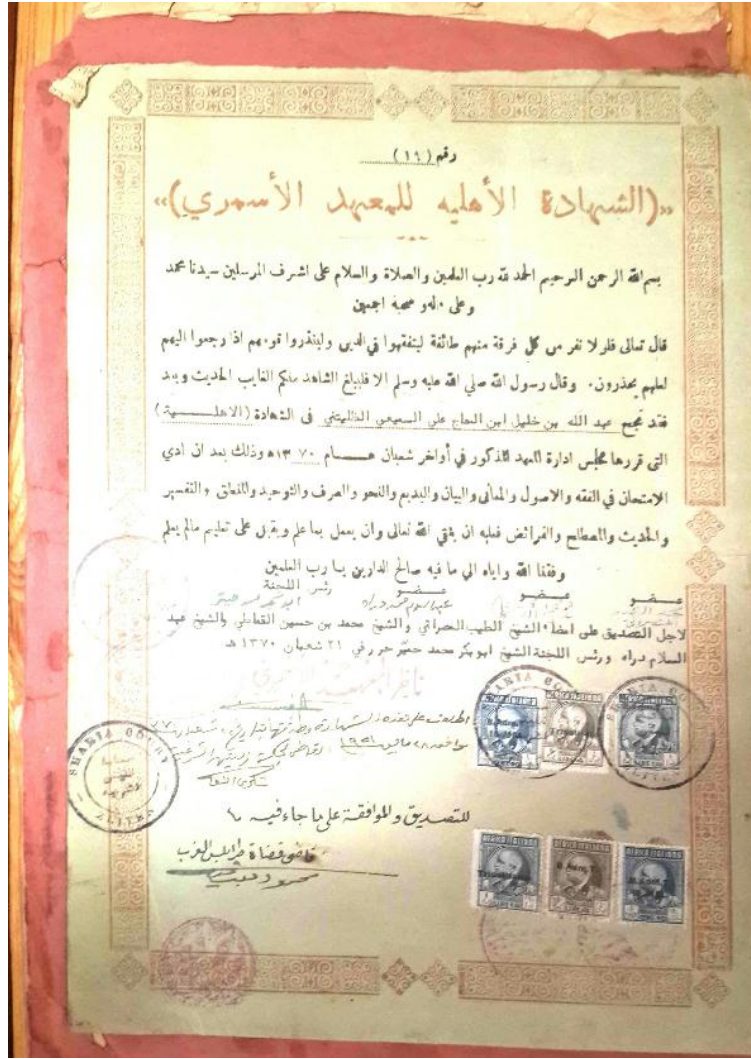 رقم (١٩)
«(الشهادة الأهليه للمعهد الأسمري)»
بسم الله الرحمن الرحيم الحمد لله رب العلمين والصلاة والسلام على اشرف المرسلين سيدنا محمد
وعلى ءله و صحبة اجمعين
قال تعالى فلولا نفر من كل فرقة منهم طائفة ليتفقهوا في الدين ولينذروا قومهم اذا رجعوا اليهم
لعلهم يحذرون. وقال رسول الله صلي الله عليه وسلم الا فليبلغ الشاهد منكم الغايب الحديث وبعد
فقد نجح عبد الله بن خليل ابن الحاج علي السميعي الظليتني فى الشهادة (الاهلــــية)
التى قررها مجلس ادارة المعهد المذكور في أواخر شعبان عـــام ١٣٧٠ه وذلك بعد ان ادي
الامتحان في الفقه والاصول والمعانى والبيان والبديع والنحو والصرف والتوحيد والمنطق والتفسير
والحديث والمصطلح والفرائض فعليه ان يتقي الله تعالى وان يعمل بما علم ويقبل على تعليم مالم يعلم
وفقنا الله واياه الى ما فيه صالح الدارين يا رب العلمين
عــضــو عــضــو عــضــو رئس اللجنة
لاجل التصديق على امضاء الشيخ الطيب المصراتي والشيخ محمد بن حسين القماطي والشيخ عبد
السلام دراه ورئس اللجنة الشيخ ابوبكر محمد حمير حرر في ٢١ شعبان ١٣٧٠ هـ
ناظر المعهد الأسمري
اطلعت على هذه الشهادة
٢٨ مايو ١٩٥١ القاضي
للتصديق والموافقة على ما جاء فيه
قاضي قضاة طرابلس الغرب
محمود
SHARIA COURT
ZLITEN
AFRICA ITALIANA
AFRICA ITALIANA
AFRICA ITALIANA
AFRICA ITALIANA
AFRICA ITALIANA
AFRICA ITALIANA